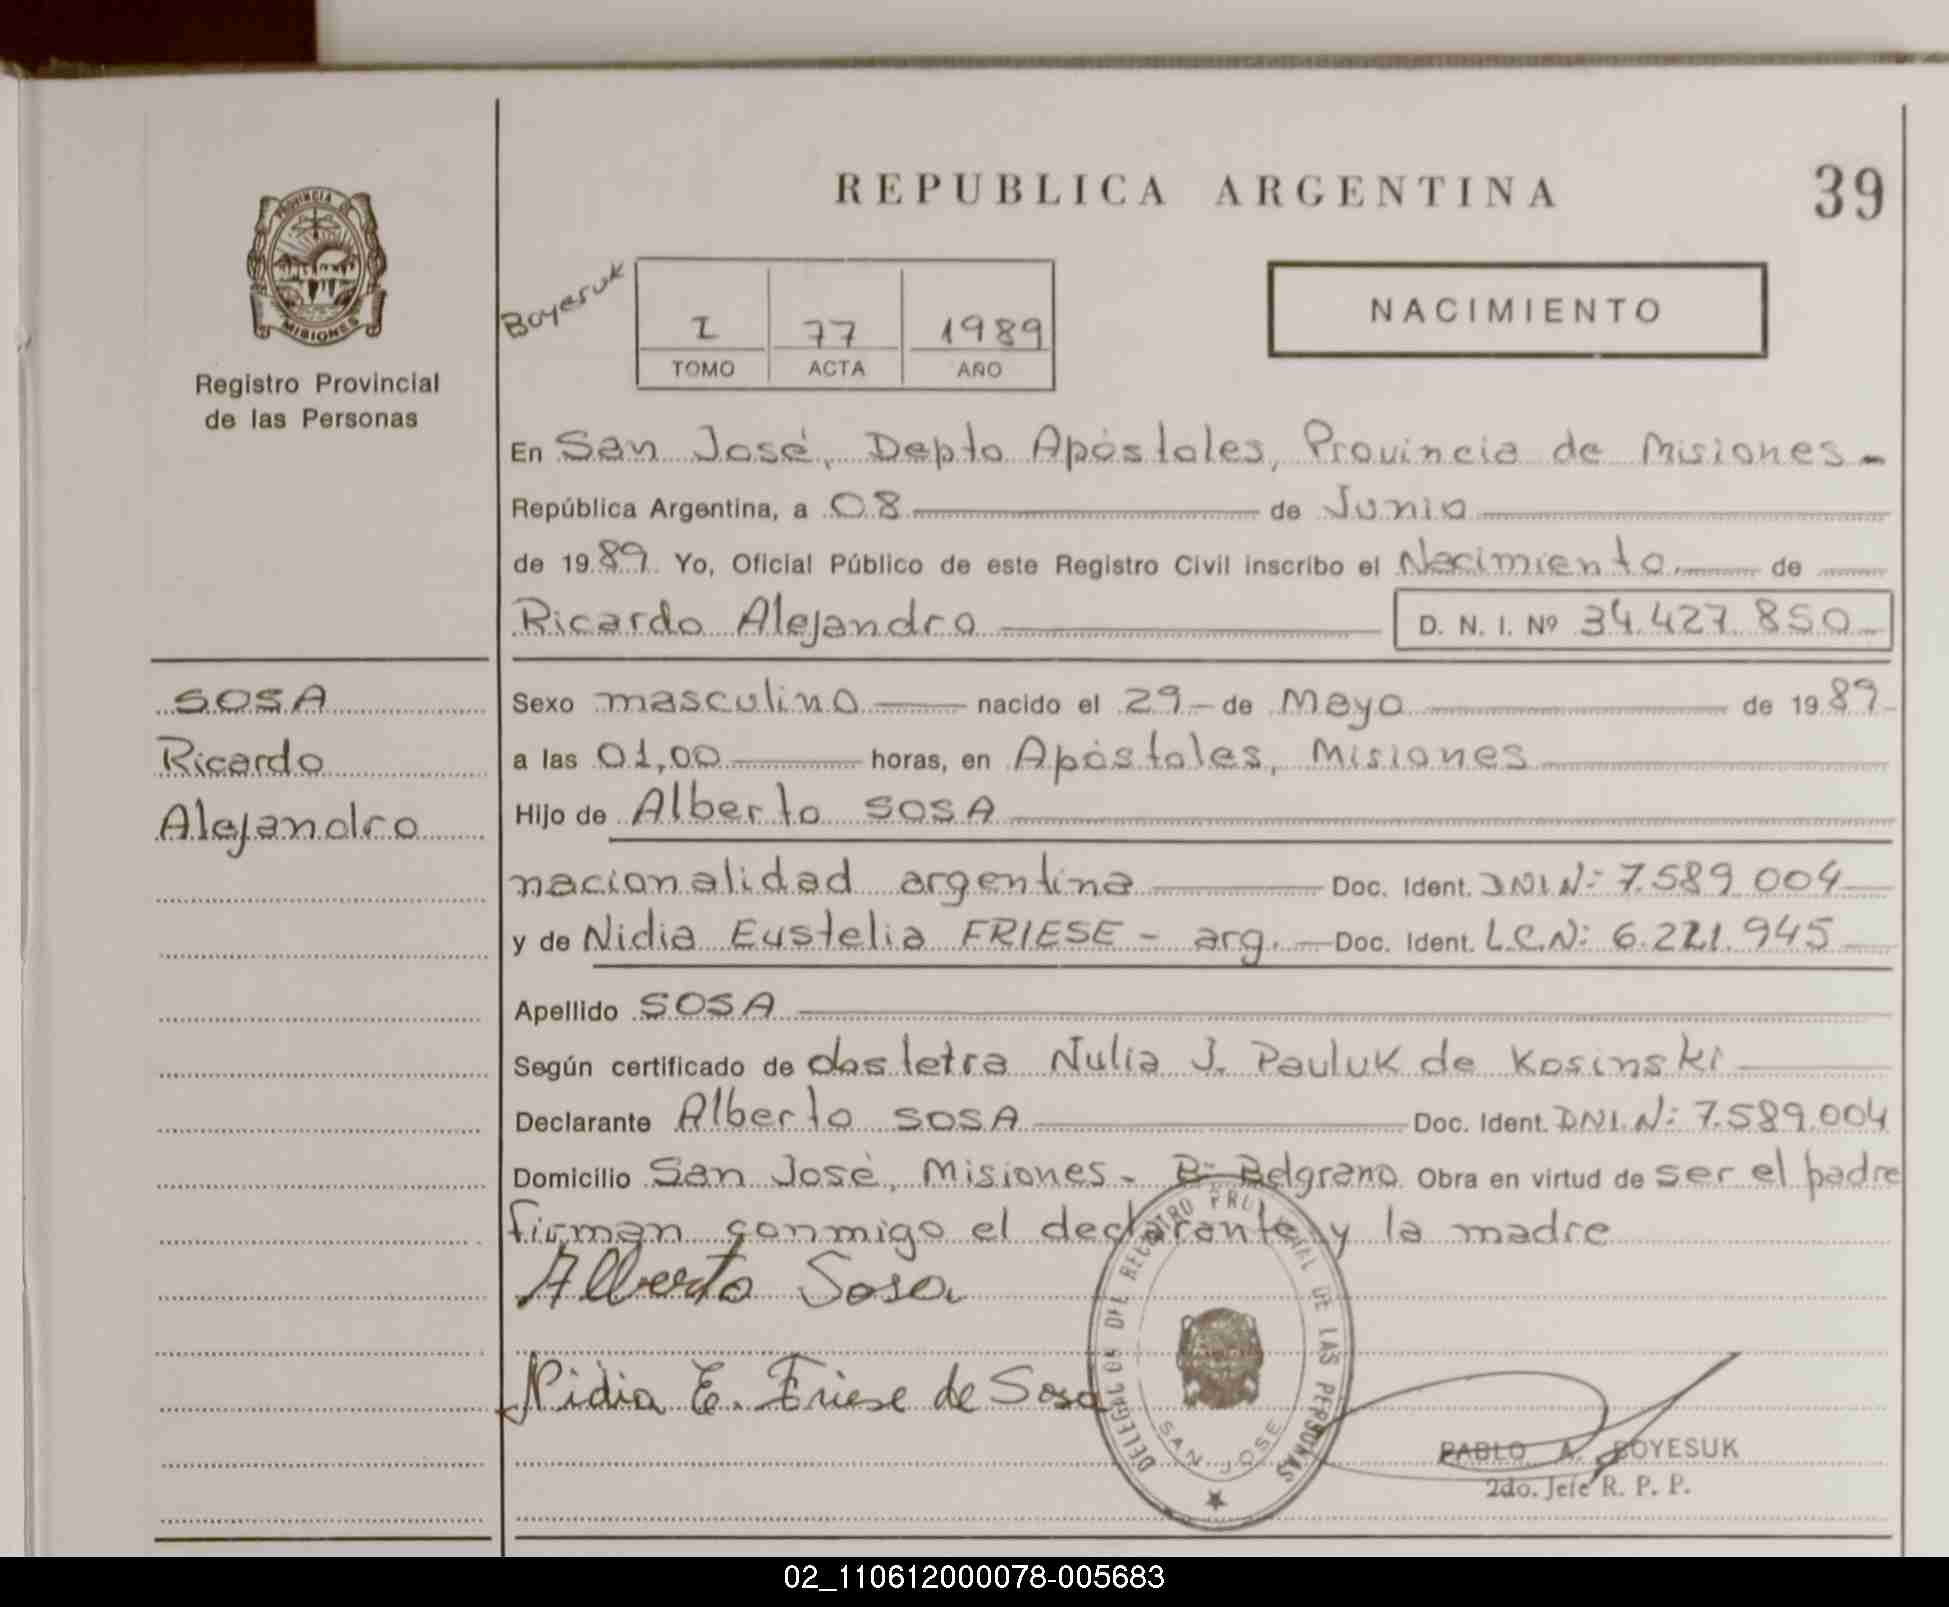 REPUBLICA ARGENTINA
39
PROVINCIA DE
MISIONES
Registro Provincial
de las Personas
Boyesuk
I 77 1989
TOMO ACTA AÑO
NACIMIENTO
En San José, Depto Apóstoles, Provincia de Misiones-
República Argentina, a 08 de Junio
de 1989 Yo, Oficial Público de este Registro Civil inscribo el Nacimiento de
Ricardo Alejandro D. N. I. Nº 34.427.850
SOSA
Ricardo
Alejandro
Sexo masculino nacido el 29 de Mayo de 1989
a las 01,00 horas, en Apóstoles, Misiones
Hijo de Alberto SOSA
nacionalidad argentina Doc. Ident. DNI N: 7.589.004
y de Nidia Eustelia FRIESE - arg. Doc. Ident. L.C.N: 6.221.945
Apellido SOSA
Según certificado de obstetra Nulia J. Pauluk de Kosinski
Declarante Alberto SOSA Doc. Ident. DNI. N: 7.589.004
Domicilio San José, Misiones - Bº Belgrano Obra en virtud de ser el padre
firman conmigo el declarante y la madre
Alberto Sosa
Nidia E. Friese de Sosa
DEL REGISTRO PROVINCIAL DE LAS PERSONAS
SAN JOSE
PABLO A. BOYESUK
2do. Jefe R. P. P.
02_110612000078-005683